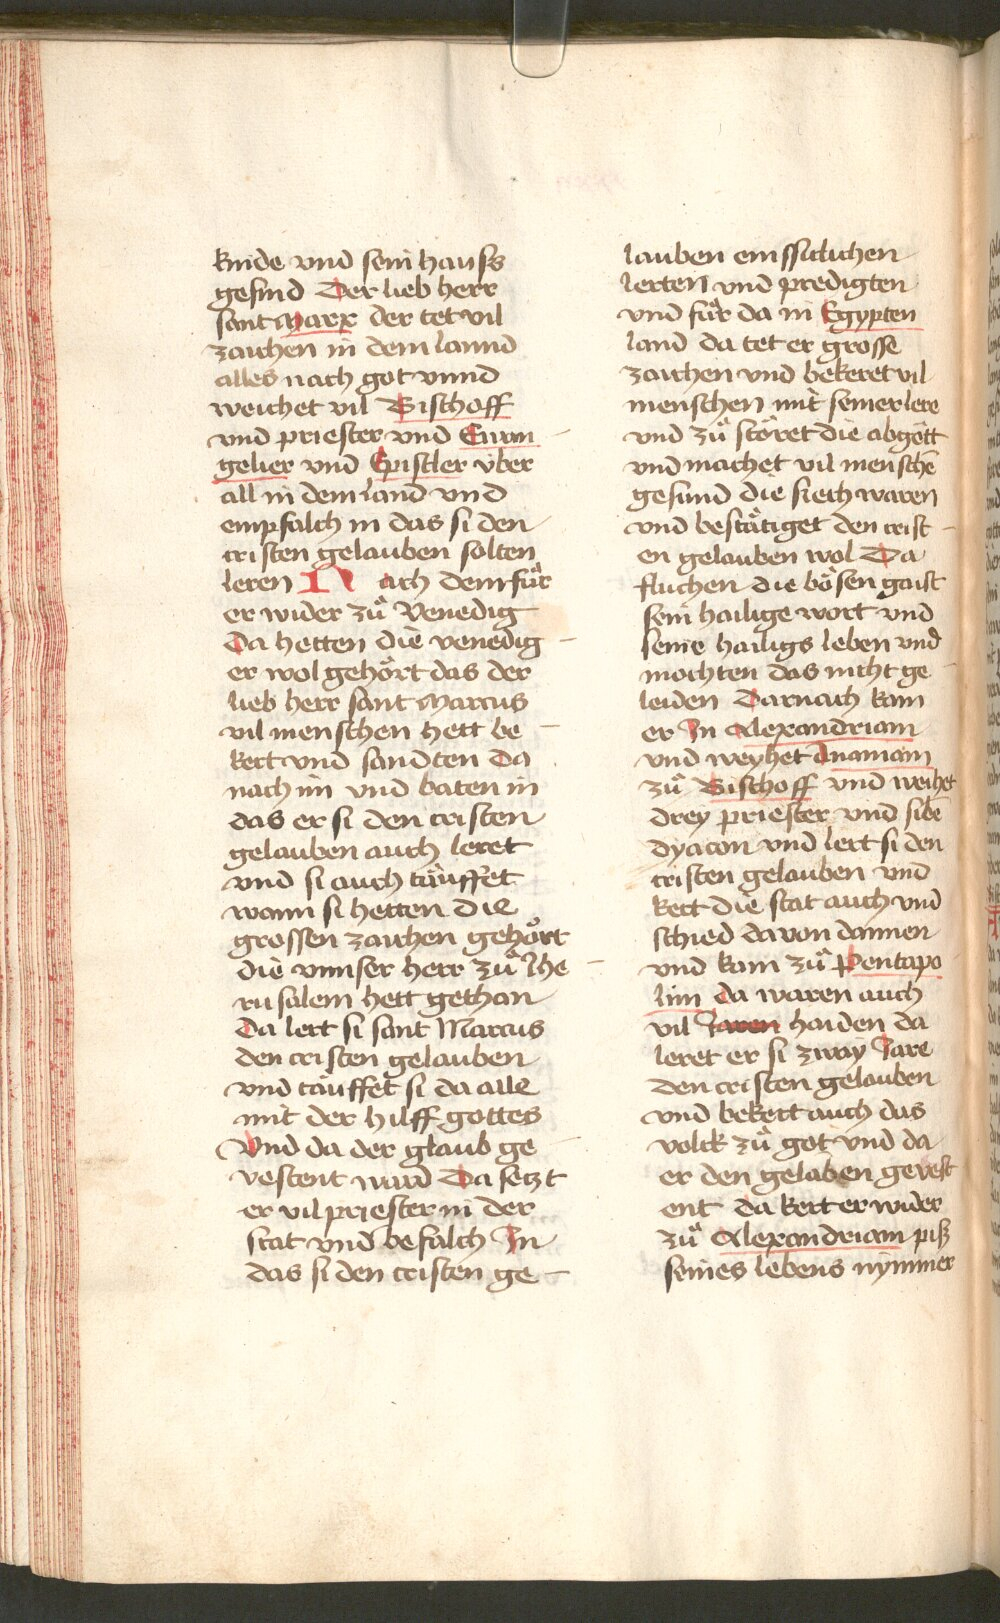 kinde vnd sein hauſs
geſind Der lieb herr
ſant Marx der tet vil
zaichen in dem lannd
alles nach got vnnd
weichet vil Biſchoff
vnd prieſter vnd Ewan
gelier vnd Epiſtler vber
all in dem land vnd
empfalch in das ſi den
criſten gelauben ſolten
leren Nach dem fuͦr
er wider zuͦ Venedig
Da hetten die venedig –
er wol gehoͤrt das der
lieb herr ſant Marcus
vil menſchen hett be –
kert vnd ſandten Da
nach im vnd baten in
das er ſi den criſten
gelauben auch leret
vnd ſi auch taͤuffet
wann ſi hetten die
groſſen zaichen gehoͤrt
die vnnſer herr zuͦ Jhe –
ruſalem hett gethan
Da lert ſi ſant Marcus
den criſten gelauben
vnd taͤuffet ſi da alle
mit der hilff gottes
Vnd da der glaub ge –
veſtent ward Da ſetzt
er vil prieſter in der
ſtat vnd befalch In
das ſi den criſten ge –
lauben emſſiclichen
lerten vnd predigten
vnd fuͦr da in Egypten
land da tet er groſſe
zaichen vnd bekeret vil
menſchen mit ſeiner lere
vnd zuͦ ſtoͤret die abgoͤtt
vnd machet vil menſchē
geſund die ſiech waren
vnd beſtaͤtiget den criſt –
en gelauben wol Da
fluchen die boͤſen gaiſt
ſein hailige wort vnd
ſeine hailigs leben vnd
mochten das nicht ge
leiden Darnach kam
er In Alexandriam
vnd weyhet Anamam
zuͦ Biſchoff vnd weihet
drey prieſter vnd ſibē
dyacon vnd lert ſi den
criſten gelauben vnd
kert die ſtat auch vnd
ſchied da von dannen
vnd kam zuͦ Pentapo
lim da waren auch
vil Jaren haiden da
leret er ſi zway Jare
den criſten gelauben
vnd bekert auch das
volck zuͦ got vnd da
er den gelaben geveſt
ent da kert er wider
zuͦ Alexandriam piſz
ſeines lebens nymmer